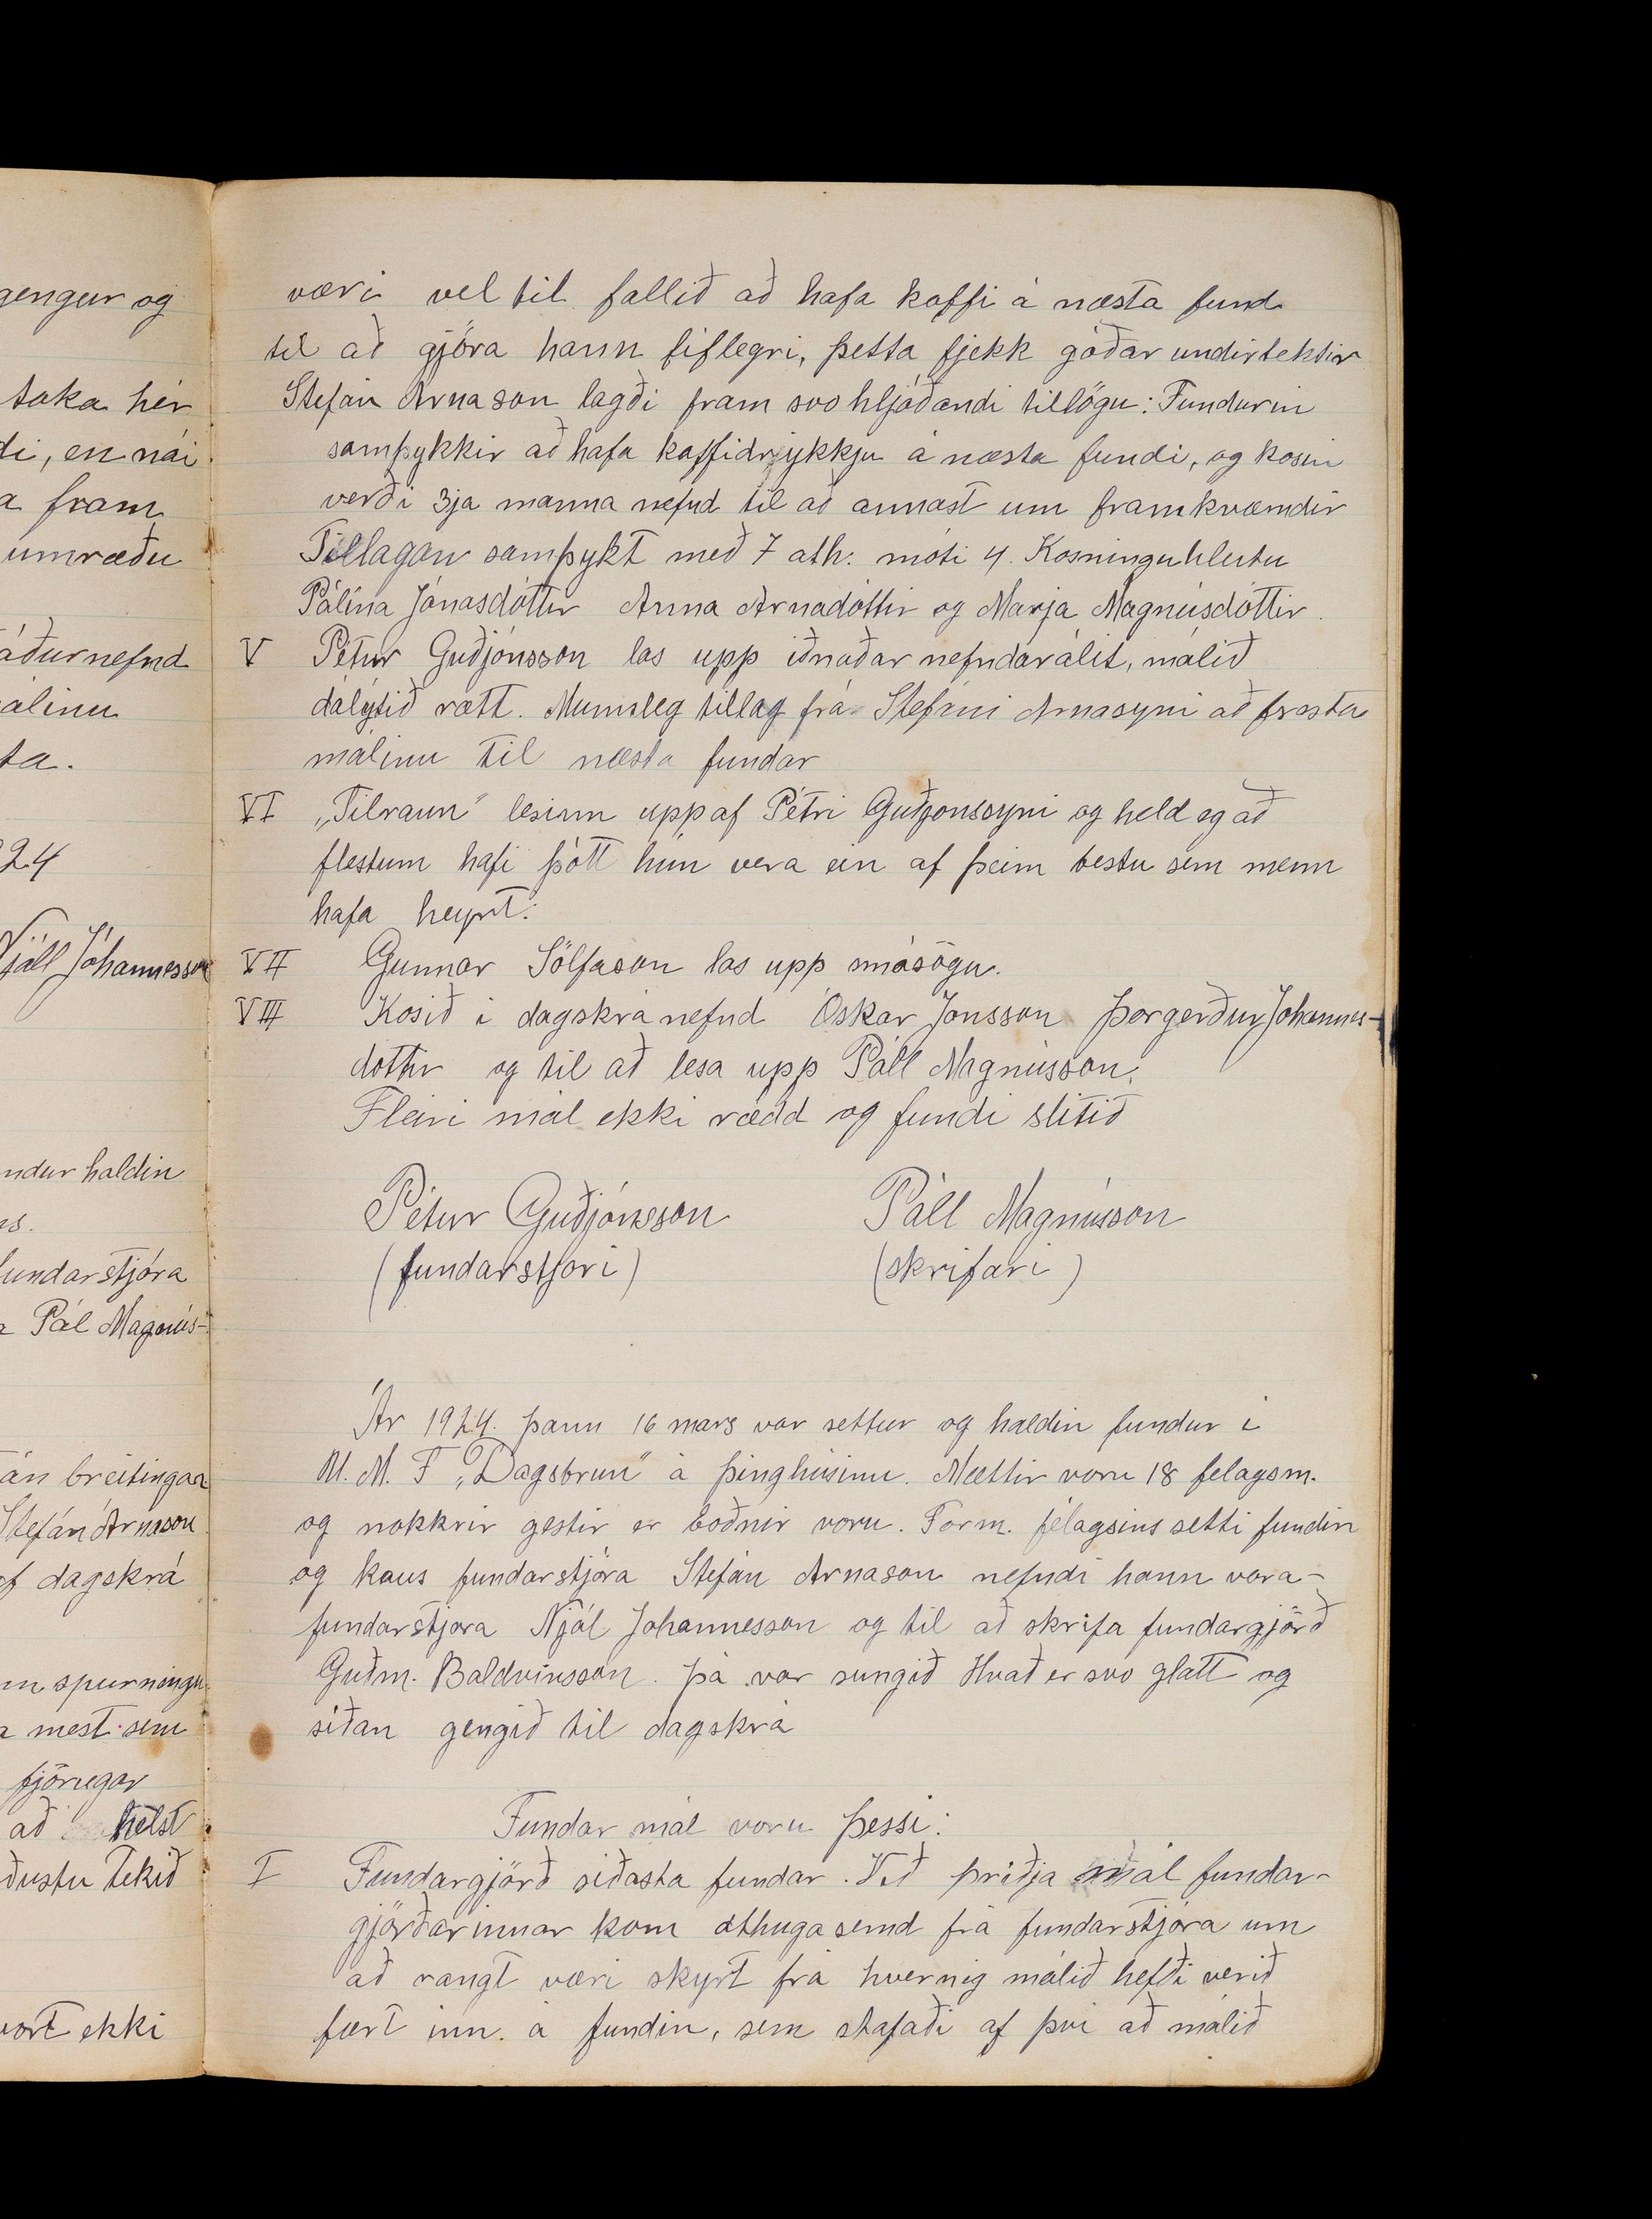 gengur og
taka hér
di, en nái
a fram
umræðu
áðurnefnd
álinu
ta.
24
Njáll Jóhannesson
ndur haldin
ns.
fundarstjóra
a Pál Magnús-
án breitingar
Stefán Árnason
f dagskrá
m spurningu
a mest sem
fjörugar
að helst
ðustu tekið
vort ekki
væri vel til fallið að hafa kaffi á næsta fund
til að gjöra hann líflegri, þetta fjekk góðar undirtektir
Stefán Árnason lagði fram svohljóðandi tillögu: Fundurin
samþykkir að hafa kaffidrykkju á næsta fundi, og kosin
verði 3ja manna nefnd til að annast um framkvæmdir
Tillagan samþykt með 7 atk. móti 4. Kosningu hlutu
Pálína Jónasdóttir Anna Árnadóttir og Marja Magnúsdóttir.
V Pétur Guðjónsson las upp iðnaðarnefndarálit, málið
dálýtið rætt. Munnleg tillag frá Stefáni Árnasyni að fresta
málinu til næsta fundar
VI „Tilraun" lesinn upp af Pétri Guðjonssyni og held eg að
flestum hafi þótt hún vera ein af þeim bestu sem menn
hafa heyrt.
VII Gunnar Sölfason las upp smásögu.
VIII Kosið i dagskránefnd Óskar Jónsson Þorgerður Jóhannes-
dóttir og til að lesa upp Páll Magnússon.
Fleiri mál ekki rædd og fundi slitið
Pétur Guðjónsson Páll Magnússon
(fundarstjori) (skrifari)
Ár 1924. þann 16 mars var settur og haldin fundur i
U. M. F „Dagsbrun" á þinghúsinu. Mættir voru 18 felagsm.
og nokkrir gestir er boðnir voru. Form. félagsins setti fundin
og kaus fundarstjóra Stefán Árnason nefndi hann vara-
fundarstjora Njál Johannesson og til að skrifa fundargjörð
Guðm. Baldvinsson. þá var sungið Hvað er svo glatt og
síðan gengið til dagskrá
Fundar mál voru þessi:
I Fundargjörð síðasta fundar. Við þriðja mál fundar-
gjörðarinnar kom athugasemd frá fundarstjóra um
að rangt væri skyrt frá hvernig málið hefði verið
fært inn á fundin, sem stafaði af því að málið